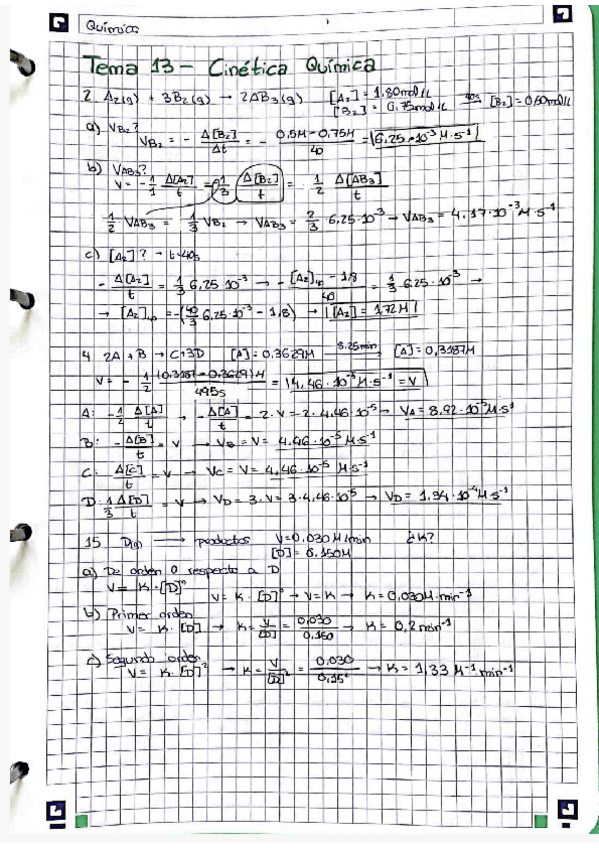 Química
Tema 13 - Cinética Química
2 A₂(g) + 3B₂(g) → 2AB₃(g) [A₂] = 1,80mol/L 40s→ [B₂] = 0,50mol/L
[B₂] = 0,75mol/L
a) VB₂?
VB₂ = - Δ[B₂]/Δt = - (0,5M - 0,75M)/40 = 6,25·10⁻³ M·s⁻¹
b) VAB₃?
V = - 1/1 Δ[A₂]/t = - 1/3 Δ[B₂]/t = 1/2 Δ[AB₃]/t
1/2 VAB₃ = 1/3 VB₂ → VAB₃ = 2/3 6,25·10⁻³ → VAB₃ = 4,17·10⁻³ M·s⁻¹
c) [A₂]? → t=40s
- Δ[A₂]/t = 1/3 6,25·10⁻³ → - ([A₂]₄₀ - 1,8)/40 = 1/3 6,25·10⁻³ →
→ [A₂]₄₀ = -(40/3 6,25·10⁻³ - 1,8) → [A₂] = 1,72M
4 2A + B → C+3D [A] = 0,3629M 8.25min→ [A] = 0,3187M
V = - 1/2 (0,3187 - 0,3629)M/495s = 4,46·10⁻⁵ M·s⁻¹ = V
A: - 1/2 Δ[A]/t → - Δ[A]/t = 2·V = 2·4,46·10⁻⁵ → VA = 8,92·10⁻⁵ M·s⁻¹
B: - Δ[B]/t = V → VB = V = 4,46·10⁻⁵ M·s⁻¹
C: Δ[C]/t = V → VC = V = 4,46·10⁻⁵ M·s⁻¹
D: 1/3 Δ[D]/t = V → VD = 3·V = 3·4,46·10⁻⁵ → VD = 1,34·10⁻⁴ M·s⁻¹
15 D(g) → productos V=0,030 M/min ¿K?
[D] = 0.150M
a) De orden 0 respecto a D
V = K·[D]ⁿ
V = K·[D]⁰ → V=K → K = 0,030M·min⁻¹
b) Primer orden
V = K·[D] → K = V/[D] = 0,030/0,150 → K = 0,2 min⁻¹
c) Segundo orden
V = K·[D]² → K = V/[D]² = 0,030/0,15² → K = 1,33 M⁻¹ min⁻¹